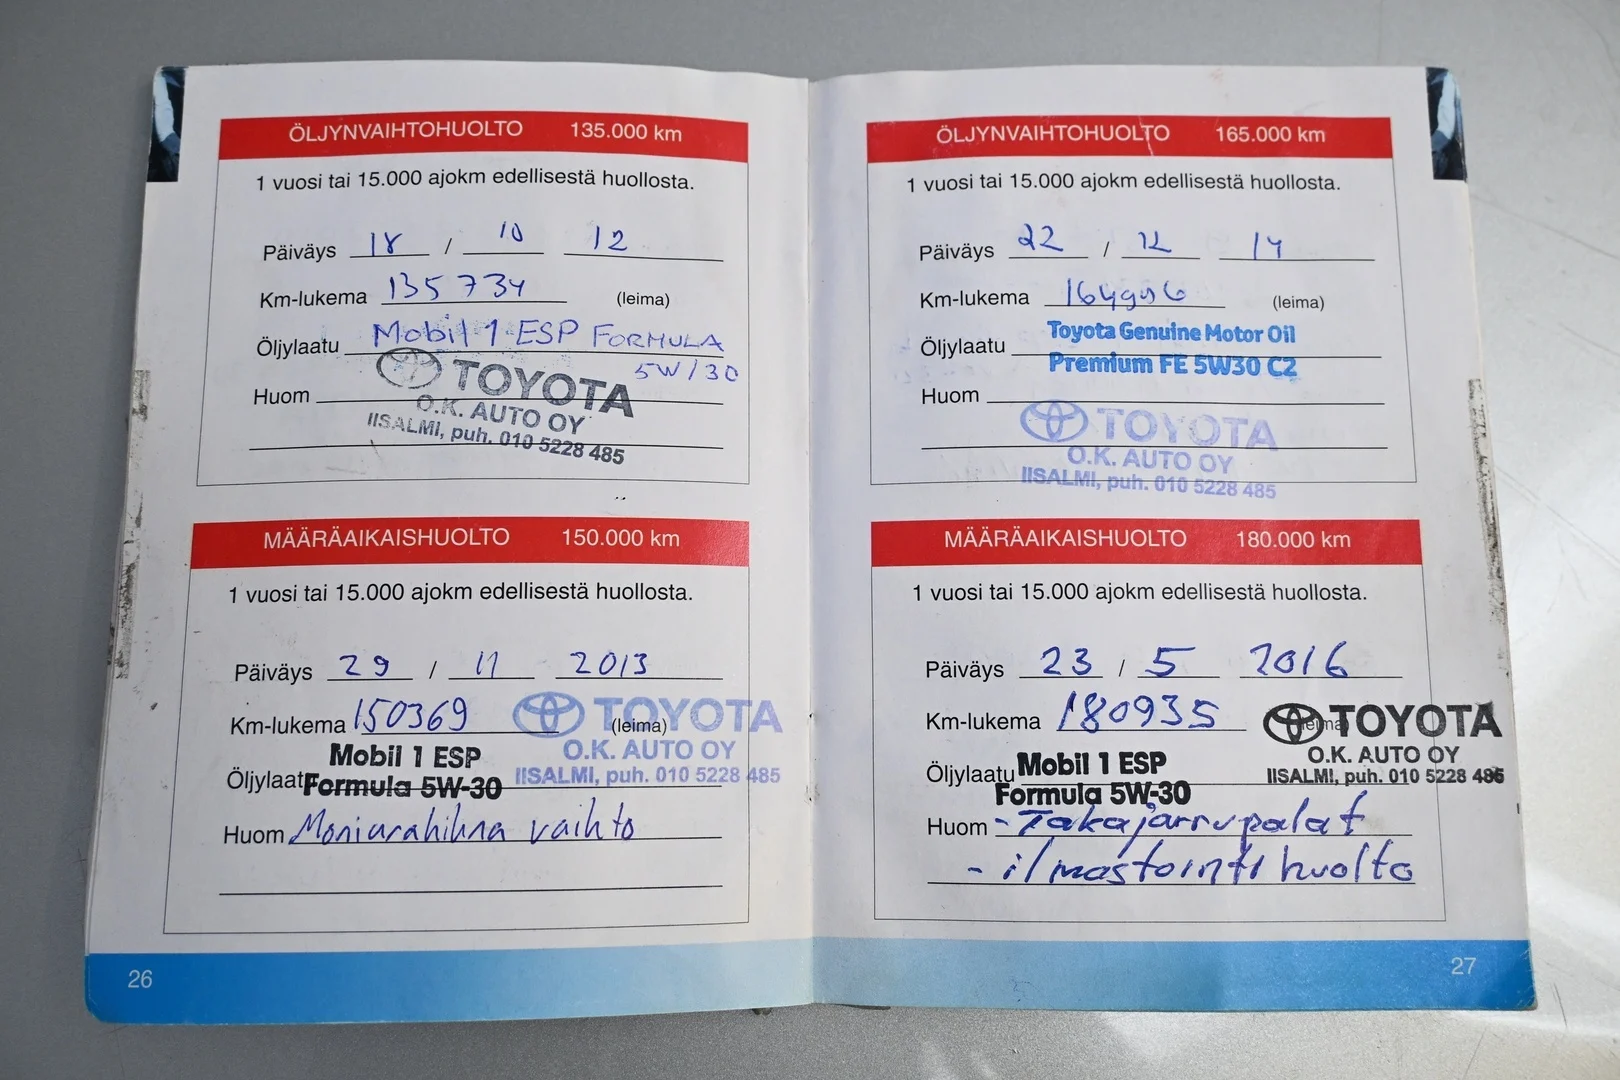 ÖLJYNVAIHTOHUOLTO 135.000 km
1 vuosi tai 15.000 ajokm edellisestä huollosta.
Päiväys 18 / 10 12
Km-lukema 135734 (leima)
Öljylaatu Mobil 1 ESP FORMULA
5W/30
Huom
TOYOTA
O.K. AUTO OY
IISALMI, puh. 010 5228 485
MÄÄRÄAIKAISHUOLTO 150.000 km
1 vuosi tai 15.000 ajokm edellisestä huollosta.
Päiväys 29 / 11 2013
Km-lukema 150369 (leima)
TOYOTA
O.K. AUTO OY
IISALMI, puh. 010 5228 485
Mobil 1 ESP
Öljylaatu Formula 5W-30
Huom Moniurahihna vaihto
26
ÖLJYNVAIHTOHUOLTO 165.000 km
1 vuosi tai 15.000 ajokm edellisestä huollosta.
Päiväys 22 / 12 14
Km-lukema 164996 (leima)
Toyota Genuine Motor Oil
Öljylaatu
Premium FE 5W30 C2
Huom
TOYOTA
O.K. AUTO OY
IISALMI, puh. 010 5228 485
MÄÄRÄAIKAISHUOLTO 180.000 km
1 vuosi tai 15.000 ajokm edellisestä huollosta.
Päiväys 23 / 5 2016
Km-lukema 180935 (leima)
TOYOTA
O.K. AUTO OY
IISALMI, puh. 010 5228 485
Öljylaatu Mobil 1 ESP
Formula 5W-30
Huom - Takajarrupalat
- ilmastointi huolto
27